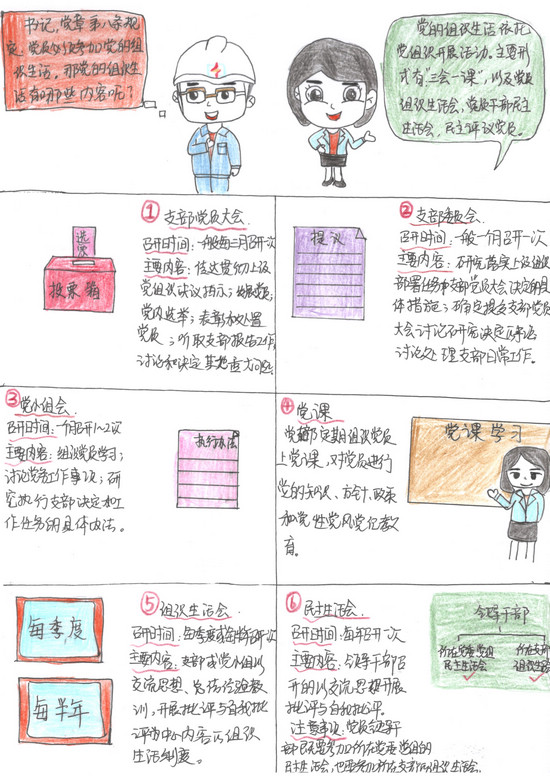 书记，党章第八条规
定，党员必须参加党的组
织生活，那党的组织生
活有哪些内容呢？
党的组织生活依托
党组织开展活动。主要形
式有"三会一课"，以及党员
组织生活会、党员干部民主
生活会、民主评议党员。
①支部党员大会
召开时间：一般每三月召开一次
主要内容：传达贯彻上级
党组织决议指示；发展党员；
党内选举；表彰和处置
党员；听取支部报告工作；
讨论和决定其他重大问题
选票
投票箱
②支部委员会
召开时间：一般一月召开一次
主要内容：研究落实上级组织
部署任务和支部党员大会决定的具
体措施；确定提交支部党员
大会讨论研究决定的
讨论处理支部日常工作。
提议
③党小组会
召开时间：一月召开1~2次
主要内容：组织党员学习；
讨论党务工作事项；研
究执行支部决定和工
作任务的具体办法。
执行办法
④党课
党支部定期组织党员
上党课，对党员进行
党的知识、方针、政策
和党性党风党纪教
育。
党课学习
每季度
每半年
⑤组织生活会
召开时间：每季度或每半年一次
主要内容：支部或党小组以
交流思想、总结经验教
训，开展批评与自我批
评为中心内容的组织
生活制度。
⑥民主生活会
召开时间：每年召开一次
主要内容：领导干部召
开的以交流思想开展
批评与自我批评。
注意事项：党员领导干
部既要参加所在党委党组的
民主生活会，也要参加所在支部的组织生活会。
领导干部
所在党委党组
民主生活会
所在支部
组织生活会